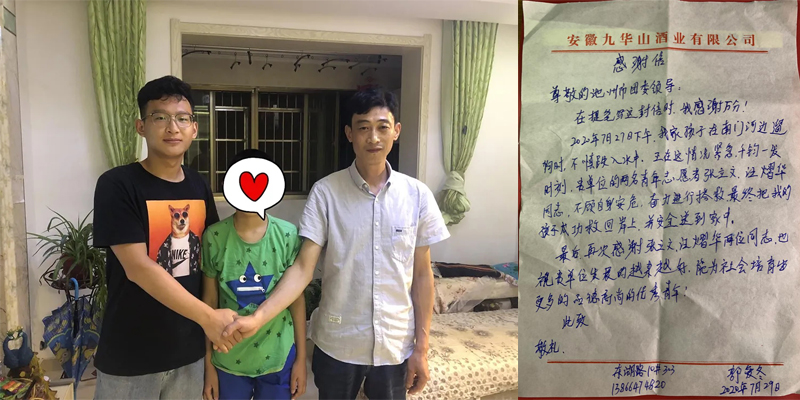 NIKE
安徽九华山酒业有限公司
感谢信
尊敬的池州市团委领导:
在提笔写这封信时,我感谢万分!
2022年7月27日下午,我家孩子在南门河边遛
狗时,不慎跌入水中,正在这情况紧急千钧一发
时刻,贵单位的两名青年志愿者张立文、汪熠华
同志,不顾自身安危,奋力进行搭救最终把我的
孩子成功救回岸上,并安全送到家中.
最后再次感谢张立文,汪熠华两位同志,也
祝贵单位发展的越来越好,能为社会培育出
更多的品德高尚的优秀青年!
此致
敬礼.
东湖路
13866474820
2022年7月29日